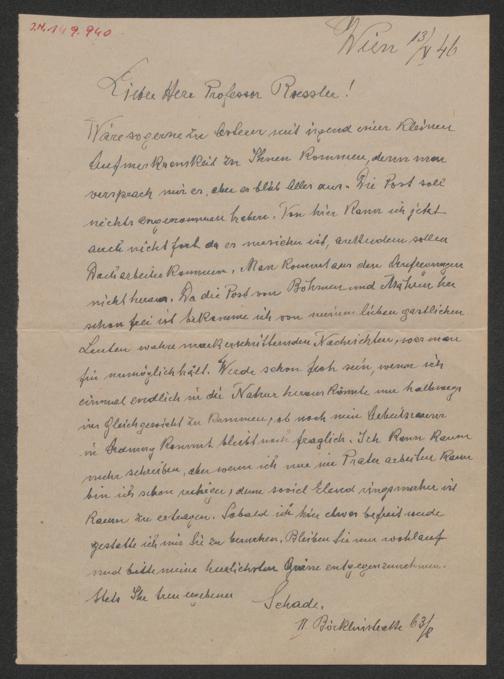 J.N. 149.940
Wien 13/V 46
Lieber Herr Professor Roessler!
Wäre so gerne zu Ostern mit irgend einer kleinen
Aufmerksamkeit zu Ihnen kommen, denn man
versprach mir es, aber es blieb Alles aus. Die Post soll
nichts angenommen haben. Von hier kann ich jetzt
auch nicht fort da es unsicher ist, außerdem sollen
Dacharbeiter kommen. Man kommt aus den Aufregungen
nicht heraus. Da die Post von Böhmen und Mähren her
schon frei ist bekomme ich von meinen lieben gastlichen
Leuten wahre markerschütternden Nachrichten, was man
für unmöglich hält. Werde schon froh sein, wenn ich
einmal endlich in die Natur heraus könnte um halbwegs
ins Gleichgewicht zu kommen, ob noch mein Arbeitsraum
in Ordnung kommt bleibt noch fraglich. Ich kann kaum
mehr schreiben, aber wenn ich nur im Prater arbeiten kann
bin ich schon ruhiger, denn soviel Elend ringsumher ist
kaum zu ertragen. Sobald ich hier etwas befreit werde
gestatte ich mir Sie zu besuchen. Bleiben Sie nur wohlauf
und bitte meine herzlichsten Grüsse entgegenzunehmen.
Stets Ihr treu ergebener
Schade.
II Böcklinstraße 63/8